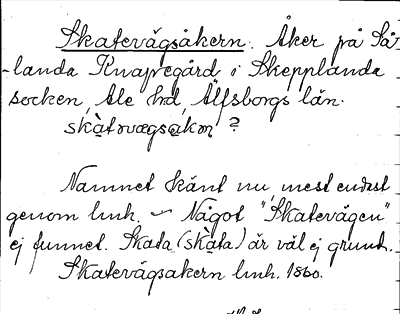 Skatevägsåkern. Åker på Så-
landa Knapegård i Skepplanda
socken, Ale hd, Älfsborgs län.
skàtvægsakɷn ?
Namnet känt nu mest endast
genom lmh. — Något "Skatevägen"
ej funnet. Skata (skàta) är väl ej grund.
Skatevägsakern lmh. 1860.